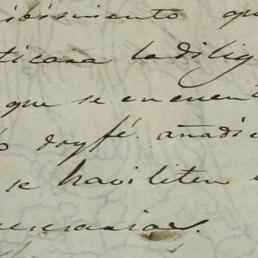 ibimiento qu
ticara la dilig
que se encuent
doy fé. añadie
se haviliten
necesarias.